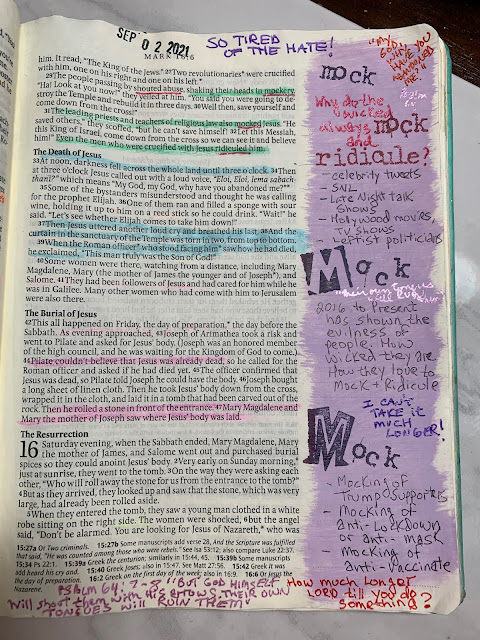 SEP 02 2021
SO TIRED
OF THE HATE!
MARK 16:6
him. It read, "The King of the Jews." 27Two revolutionaries* were crucified
with him, one on his right and one on his left.*
29The people passing by shouted abuse, shaking their heads in mockery.
"Ha! Look at you now!" they yelled at him. "You said you were going to de-
stroy the Temple and rebuild it in three days. 30Well then, save yourself and
come down from the cross!"
31The leading priests and teachers of religious law also mocked Jesus. "He
saved others," they scoffed, "but he can't save himself! 32Let this Messiah,
this King of Israel, come down from the cross so we can see it and believe
him!" Even the men who were crucified with Jesus ridiculed him.
The Death of Jesus
33At noon, darkness fell across the whole land until three o'clock. 34Then
at three o'clock Jesus called out with a loud voice, "Eloi, Eloi, lema sabach-
thani?" which means "My God, my God, why have you abandoned me?"*
35Some of the bystanders misunderstood and thought he was calling
for the prophet Elijah. 36One of them ran and filled a sponge with sour
wine, holding it up to him on a reed stick so he could drink. "Wait!" he
said. "Let's see whether Elijah comes to take him down!"
37Then Jesus uttered another loud cry and breathed his last. 38And the
curtain in the sanctuary of the Temple was torn in two, from top to bottom.
39When the Roman officer* who stood facing him* saw how he had died,
he exclaimed, "This man truly was the Son of God!"
40Some women were there, watching from a distance, including Mary
Magdalene, Mary (the mother of James the younger and of Joseph*), and
Salome. 41They had been followers of Jesus and had cared for him while he
was in Galilee. Many other women who had come with him to Jerusalem
were also there.
The Burial of Jesus
42This all happened on Friday, the day of preparation,* the day before the
Sabbath. As evening approached, 43Joseph of Arimathea took a risk and
went to Pilate and asked for Jesus' body. (Joseph was an honored member
of the high council, and he was waiting for the Kingdom of God to come.)
44Pilate couldn't believe that Jesus was already dead, so he called for the
Roman officer and asked if he had died yet. 45The officer confirmed that
Jesus was dead, so Pilate told Joseph he could have the body. 46Joseph bought
a long sheet of linen cloth. Then he took Jesus' body down from the cross,
wrapped it in the cloth, and laid it in a tomb that had been carved out of the
rock. Then he rolled a stone in front of the entrance. 47Mary Magdalene and
Mary the mother of Joseph saw where Jesus' body was laid.
The Resurrection
16 Saturday evening, when the Sabbath ended, Mary Magdalene, Mary
the mother of James, and Salome went out and purchased burial
spices so they could anoint Jesus' body. 2Very early on Sunday morning,*
just at sunrise, they went to the tomb. 3On the way they were asking each
other, "Who will roll away the stone for us from the entrance to the tomb?"
4But as they arrived, they looked up and saw that the stone, which was very
large, had already been rolled aside.
5When they entered the tomb, they saw a young man clothed in a white
robe sitting on the right side. The women were shocked, 6but the angel
said, "Don't be alarmed. You are looking for Jesus of Nazareth,* who was
15:27a Or Two criminals. 15:27b Some manuscripts add verse 28, And the Scripture was fulfilled
that said, "He was counted among those who were rebels." See Isa 53:12; also compare Luke 22:37.
15:34 Ps 22:1. 15:39a Greek the centurion; similarly in 15:44, 45. 15:39b Some manuscripts
add heard his cry and. 15:40 Greek Joses; also in 15:47. See Matt 27:56. 15:42 Greek It was
the day of preparation. 16:2 Greek on the first day of the week; also in 16:9. 16:6 Or Jesus the
Nazarene.
PSALM 64:7-8! BUT GOD HIMSELF
Will shoot them with His ARROWS. THEIR OWN
TONGUES Will RUIN THEM
mock
Why do the
wicked
always mock
and
ridicule?
- celebrity tweets
- SNL
- Late Night talk
Shows
- Hollywood movies,
TV shows
- Leftist politicians
Mock
2016 to Present
has shown the
evilness of
people. How
wicked they are.
How they love to
Mock + Ridicule
I CAN'T
TAKE IT
MUCH
LONGER!
Mock
- Mocking of
Trump Supporters
- Mocking of
anti-Lockdown
or anti-mask
- Mocking of
anti-Vaccinate
How much Longer
LORD till you do
something?